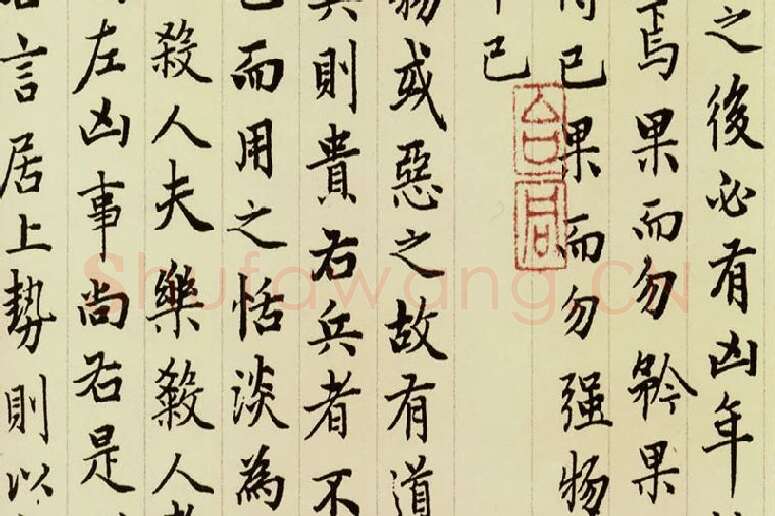 之後必有凶年
焉果而勿矜果
得已果而勿强物
已
物或惡之故有道
兵則貴右兵者不
已而用之恬淡為
殺人夫樂殺人者
左凶事尚右是
言居上勢則以
Shufawang.CN